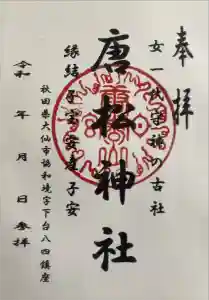 奉拝
女一代守護の古社
唐松神社
縁結子宝安産子安
秋田県大仙市協和境字下台八四鎮座
令和 年 月 日参拝